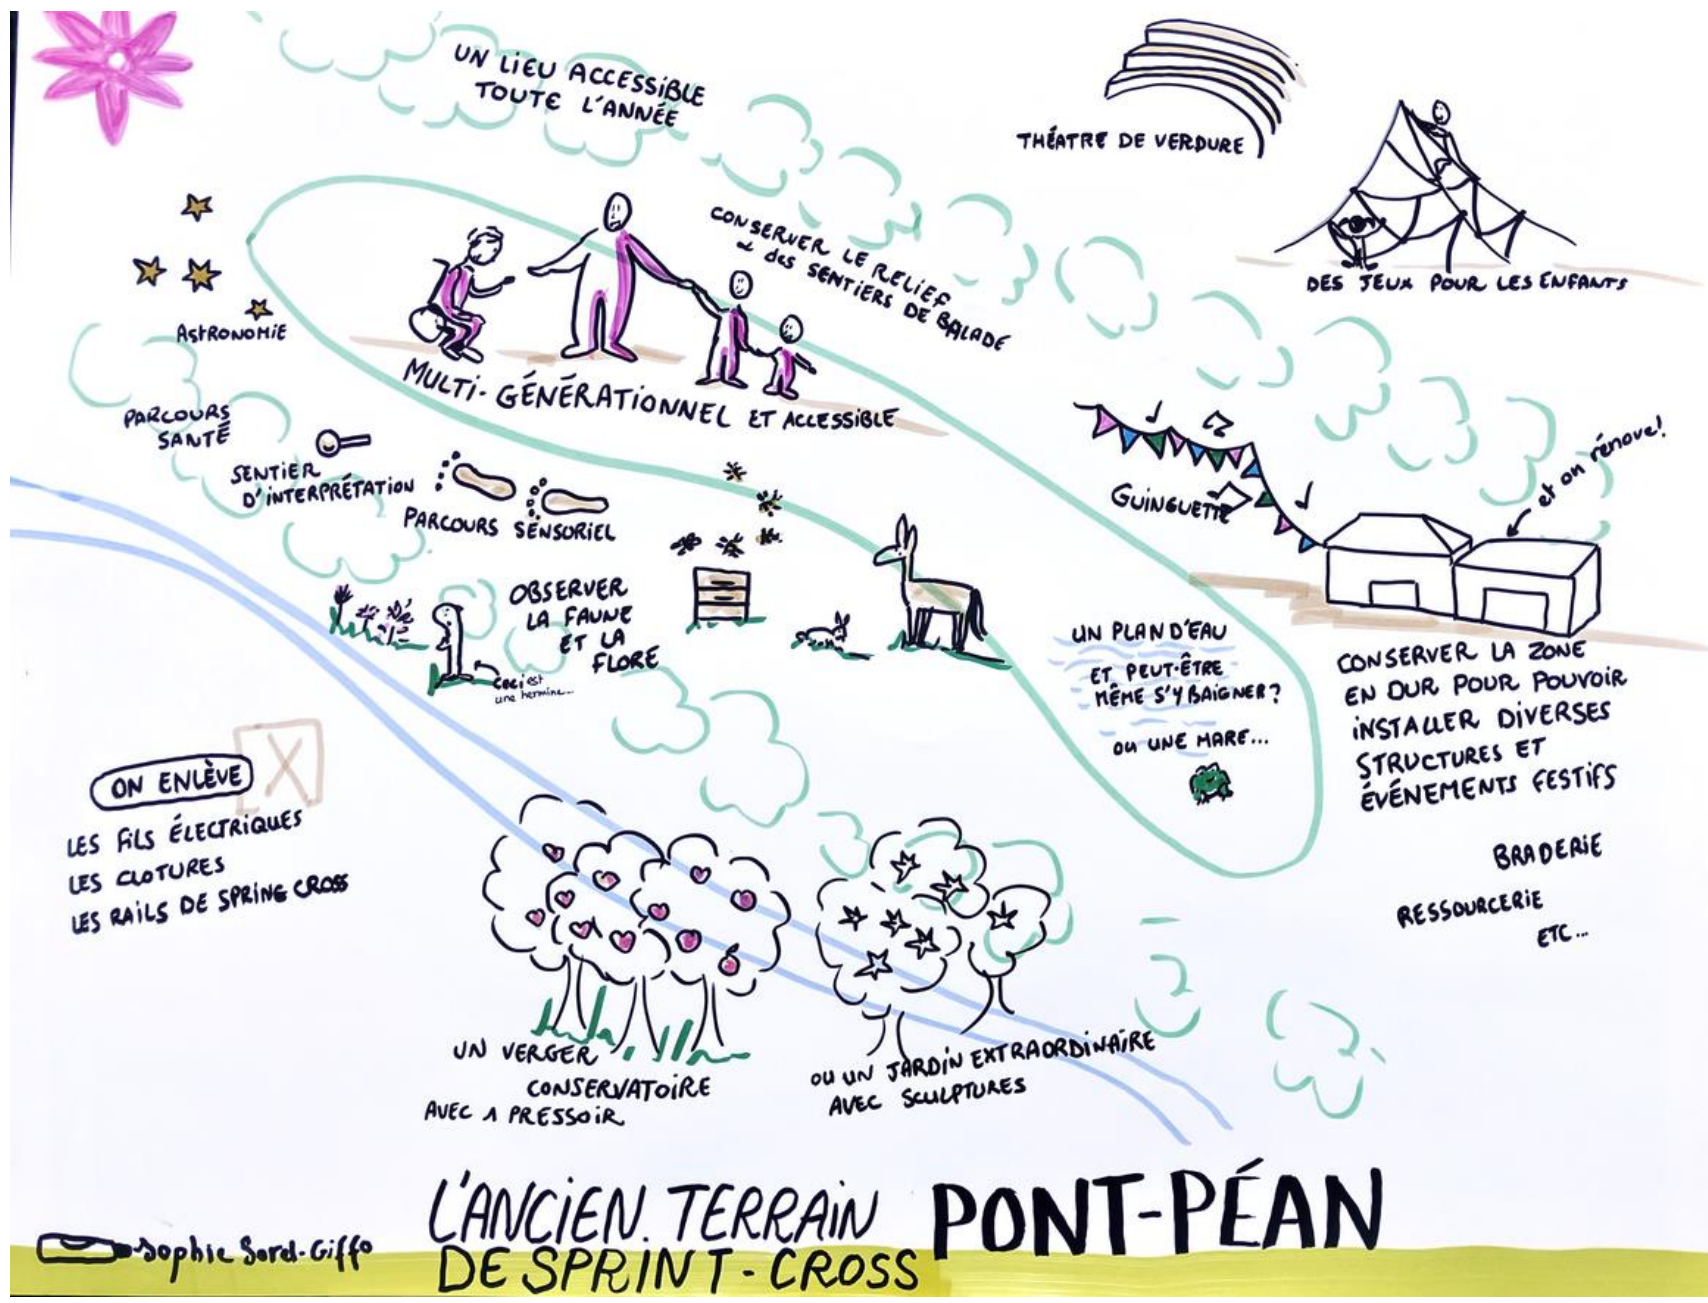 UN LIEU ACCESSIBLE
TOUTE L'ANNÉE
THÉATRE DE VERDURE
DES JEUX POUR LES ENFANTS
CONSERVER LE RELIEF
& des SENTIERS DE BALADE
ASTRONOMIE
MULTI-GÉNÉRATIONNEL ET ACCESSIBLE
PARCOURS
SANTÉ
SENTIER
D'INTERPRÉTATION
PARCOURS SENSORIEL
GUINGUETTE
et on rénove!
OBSERVER
LA FAUNE
ET LA
FLORE
Ceci est
une hermine...
UN PLAN D'EAU
ET PEUT-ÊTRE
MÊME S'Y BAIGNER?
OU UNE MARE...
CONSERVER LA ZONE
EN DUR POUR POUVOIR
INSTALLER DIVERSES
STRUCTURES ET
ÉVÉNEMENTS FESTIFS
BRADERIE
RESSOURCERIE
ETC...
ON ENLÈVE
LES FILS ÉLECTRIQUES
LES CLOTURES
LES RAILS DE SPRING CROSS
UN VERGER
CONSERVATOIRE
AVEC 1 PRESSOIR
OU UN JARDIN EXTRAORDINAIRE
AVEC SCULPTURES
L'ANCIEN TERRAIN
DE SPRINT-CROSS
PONT-PÉAN
Sophie Sorel-Giffo